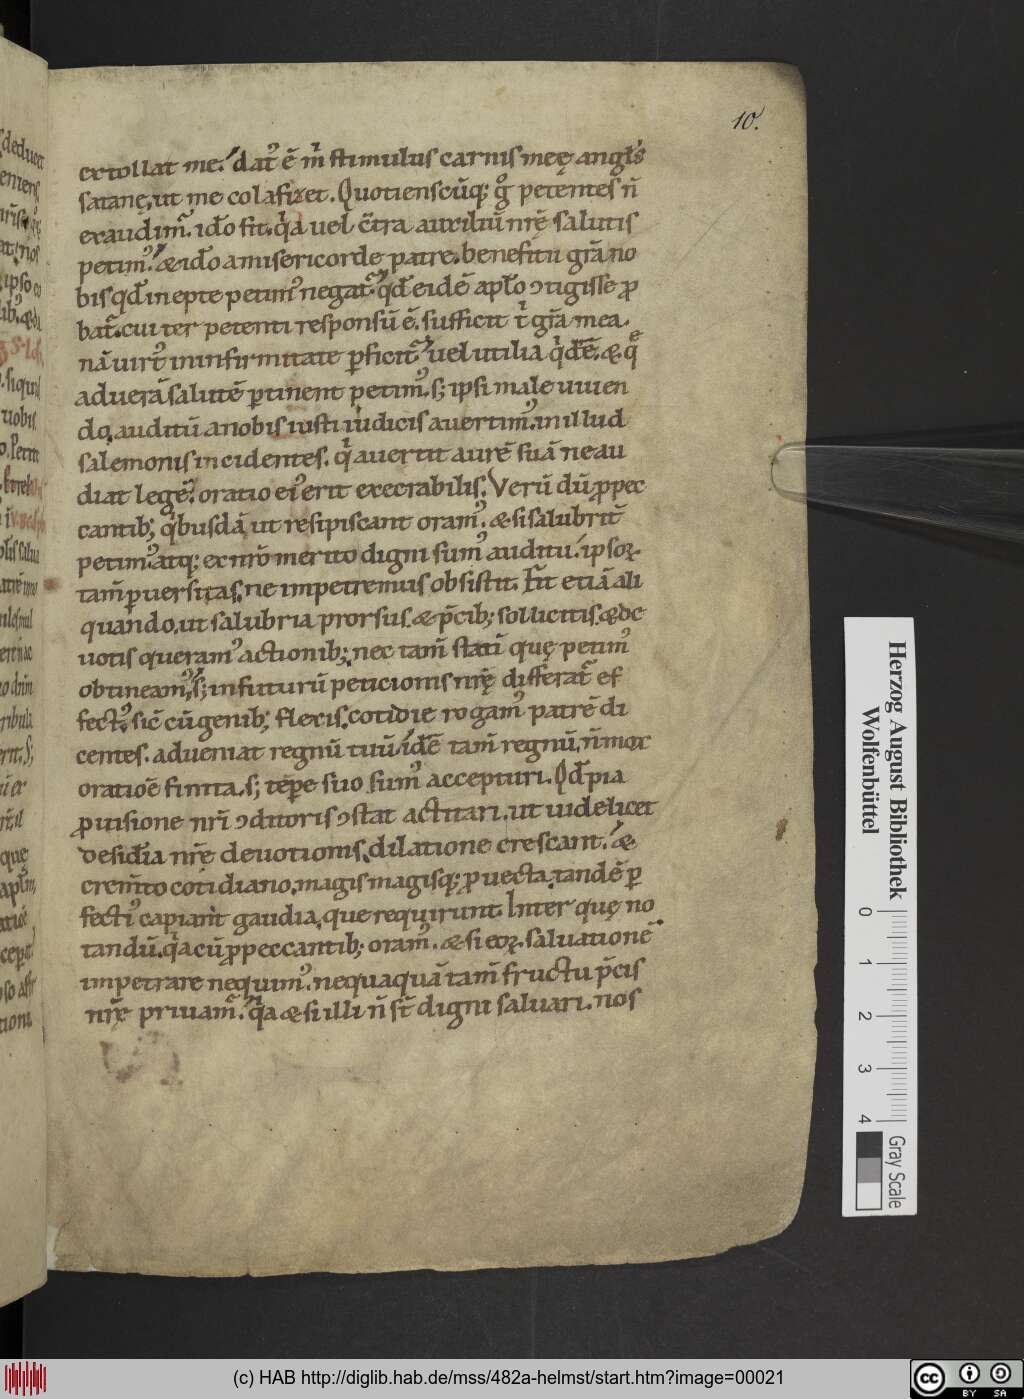 10.
extollat me. dat᷒ ē m̄ stimulus carnis meę angl̄s
satanę, ut me colafizet. Quotienscūq; g̊ petentes n̄
exaudimur̄. ido fit. q̄a vel c̄tra auxiliū nr̄ę salutis
petim᷒. & ido a misericorde patre. beneficii gr̄a no
bis qd̄ inepte petim᷒ negat᷑. qd̄ eidē apl̄o ɔtigisse ꝓ
bat᷑. cui ter petenti responsū ē. sufficit t̄ gr̄a mea.
nā uirt᷒ in infirmitate ꝑficit᷑. uel utilia q̄dē. & q̨
ad uerā salutē ꝑtinent petim᷒. s; ipsi male uiuen
do, auditū a nobis iusti iudicis auertim᷒. in illud
salemonis incidentes. q̄ auertit aurē suā ne au
diat legē. oratio ei᷒ erit execrabilis. Verū dū ꝓ pec
cantib; q̄busdā ut resipiscant oram᷒. & si salubrit̄
petim᷒. atq; ex nr̄o merito digni sum᷒ auditu. ipsoꝝ
tam̄ ꝑuersitas, ne impetremus obsistit. Fit etiā ali
quando. ut salubria prorsus. & p̄cib; sollicitis. & de
uotis queram᷒ actionib; nec tam̄ statī quę petim᷒
obtineam᷒. s; in futurū peticionis nr̄ę differat᷑ ef
fect᷒. sic̄ cū genib; flexis. cotidie rogam᷒ patrē di
centes. adueniat regnū tuū. idē tam̄ regnū. n̄ mox
oratiōe finita. s; tēpe suo sum᷒ accepturi. Qd̄ pia
ꝓuisione nr̄i ɔditoris ɔstat actitari. ut uidelicet
desid̄ia nr̄ę deuotionis, dilatione crescant. &
crem̄to cotidiano, magis magisq; ꝓuecta. tandē ꝑ
fecti᷒ capiant gaudia, que requirunt. Inter quę no
tandū. q̄a cū ꝓ peccantib; oram᷒. & si eoꝝ. saluationē
impetrare nequim᷒. nequaquā tam̄ fructu p̄cis
nr̄ę priuam᷑. q̄a & si illi n̄ st̄ digni saluari. nos
Herzog August Bibliothek
Wolfenbüttel
0 1 2 3 4
Gray Scale
(c) HAB http://diglib.hab.de/mss/482a-helmst/start.htm?image=00021
cc BY SA